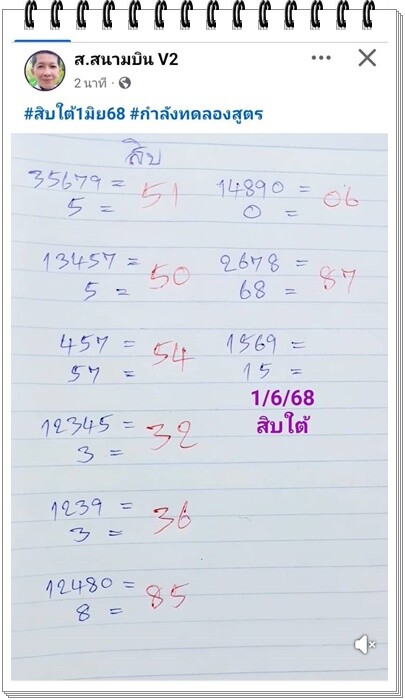 ส.สนามบิน V2
2 นาที ·
#สิบใต้1มิย68 #กำลังทดลองสูตร
สิบ
35679 = 51
5 =
13457 = 50
5 =
457 = 54
57 =
12345 = 32
3 =
1239 = 36
3 =
12480 = 85
8 =
14890 = 06
0 =
2678 = 87
68 =
1569 =
15 =
1/6/68
สิบใต้